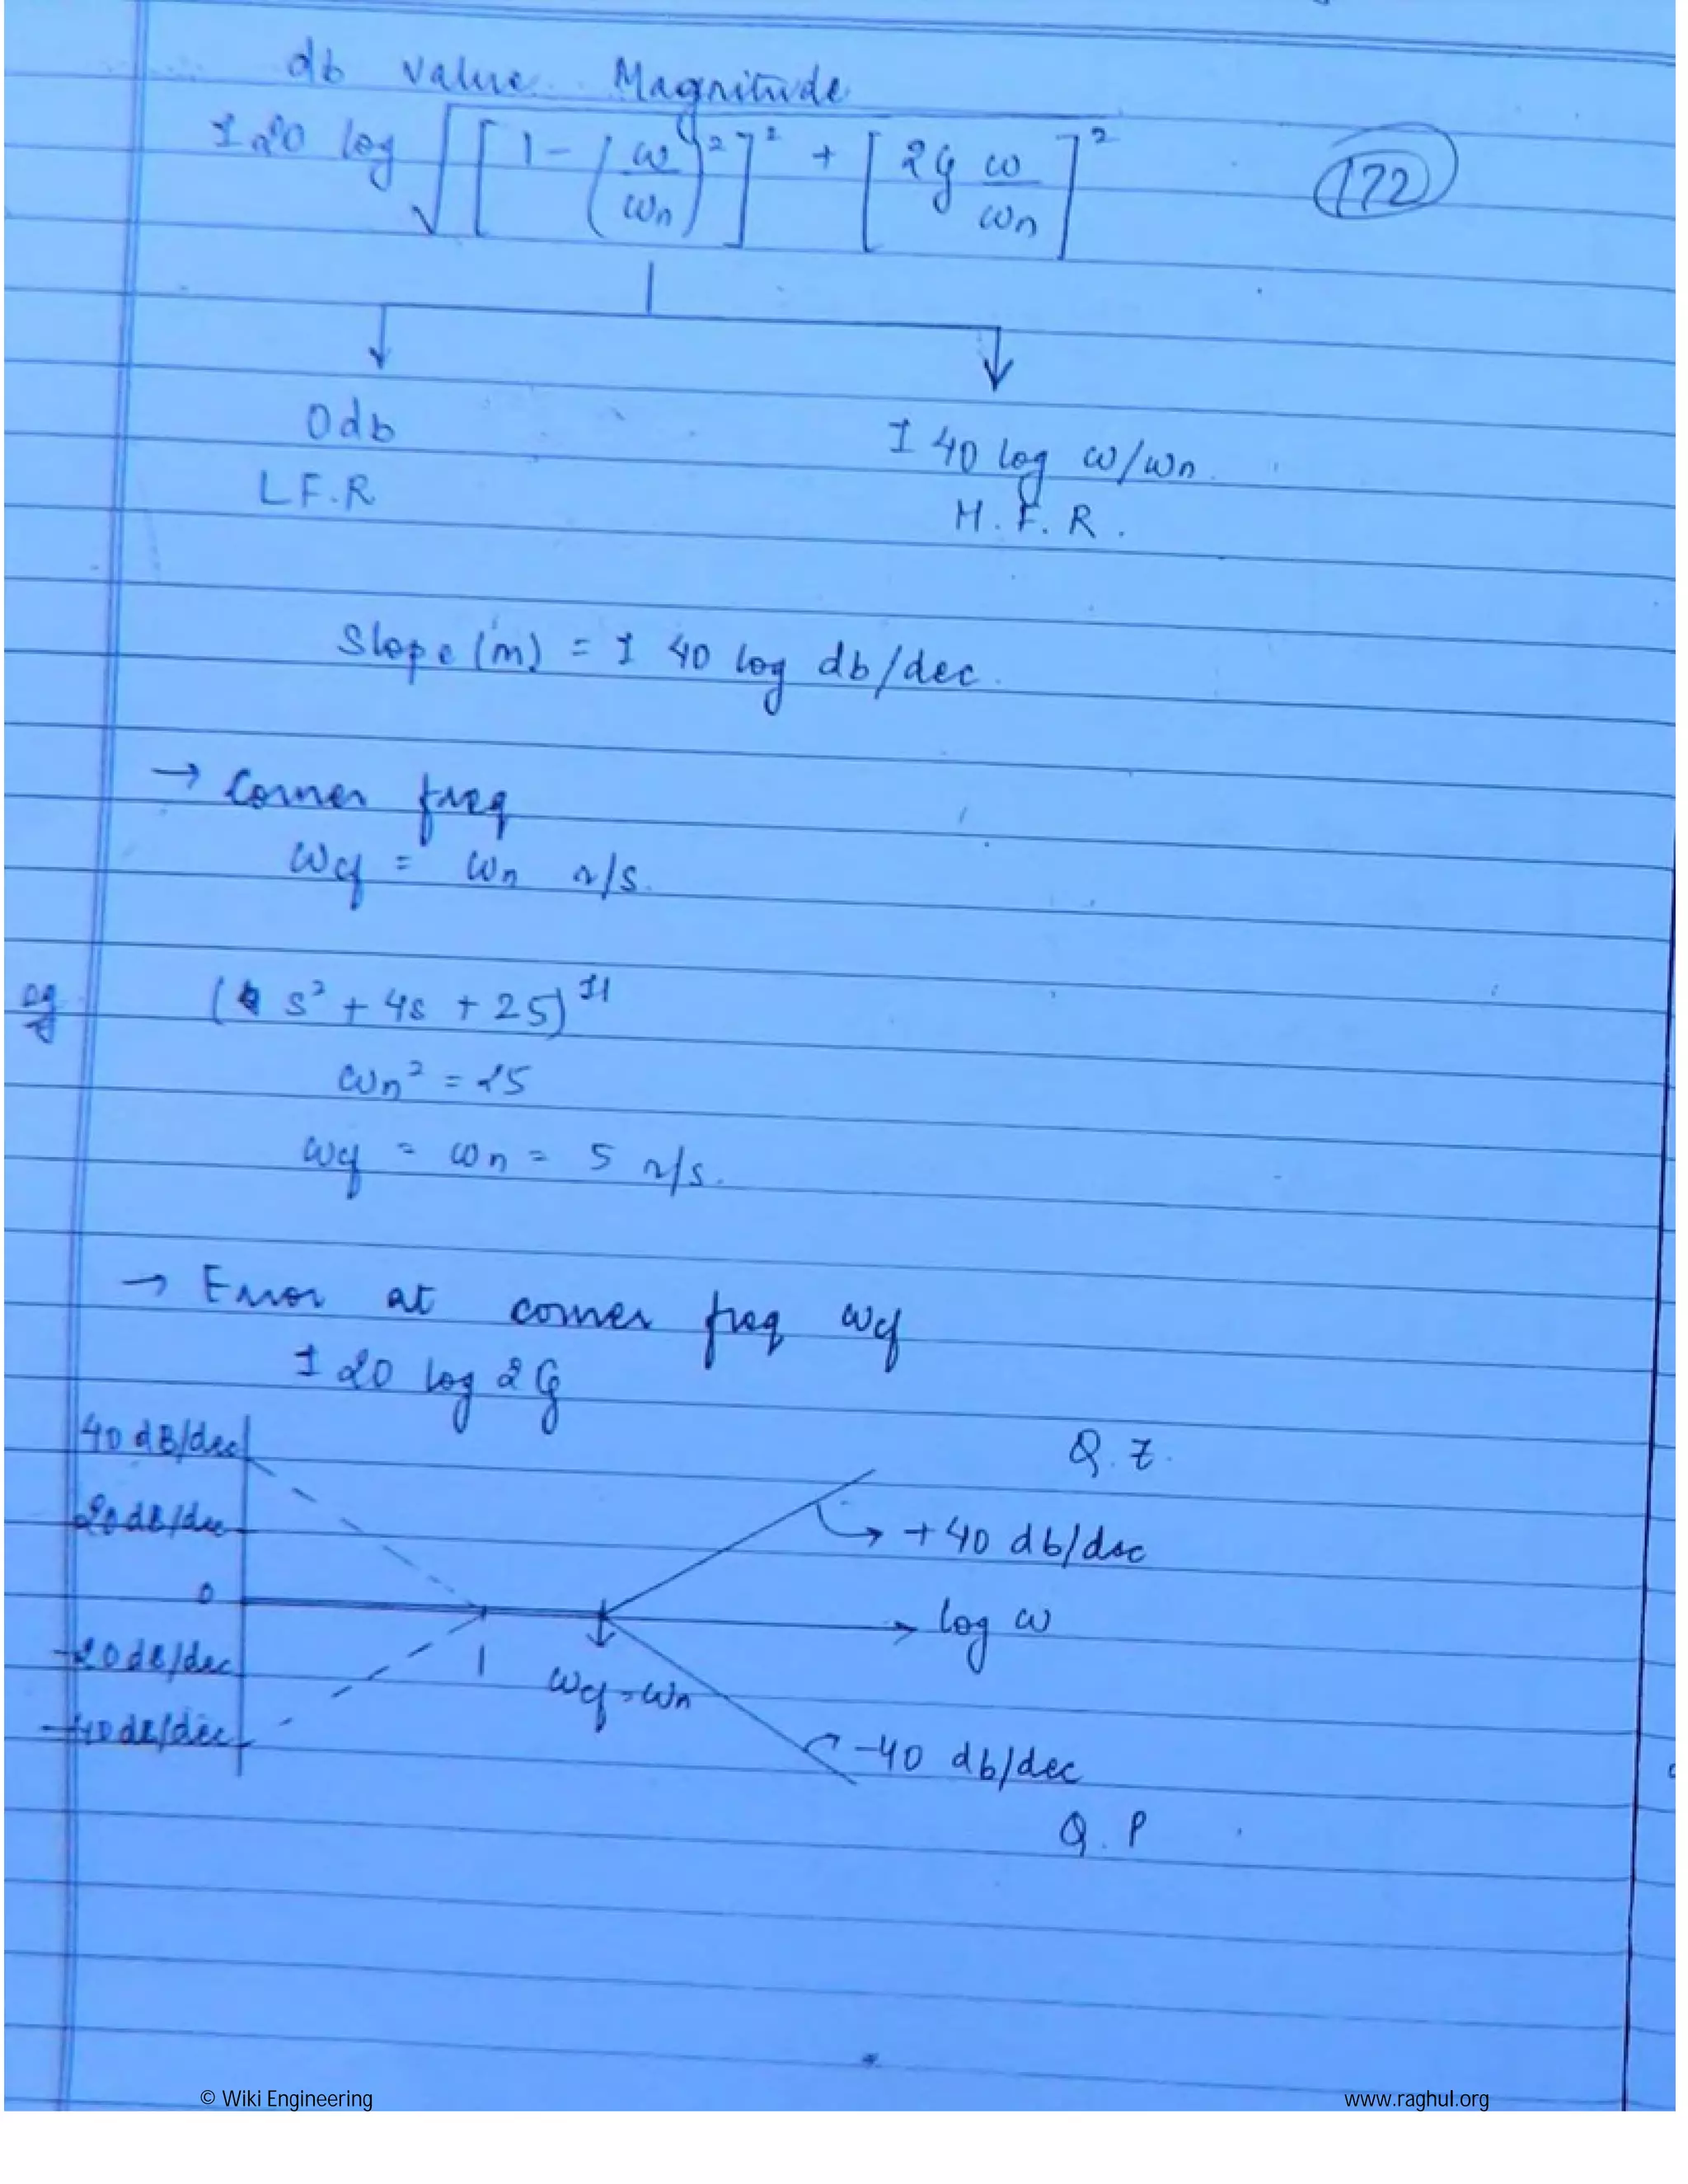 db value Magnitude
± 20 log √([1-(ω/ωn)²]² + [2ζ ω/ωn]²)
172
0db
± 40 log ω/ωn
L.F.R
H.F.R.
Slope (m) = ± 40 log db/dec.
→ Corner freq
ωcf = ωn r/s.
eg (s² + 4s + 25)^±1
ωn² = 25
ωcf = ωn = 5 r/s.
→ Error at corner freq ωcf
± 20 log 2ζ
40 dB/dec
Q.Z.
20 dB/dec
+40 db/dec
0
log ω
-20 dB/dec
1
ωcf = ωn
-40 dB/dec
-40 db/dec
Q.P
© Wiki Engineering
www.raghul.org